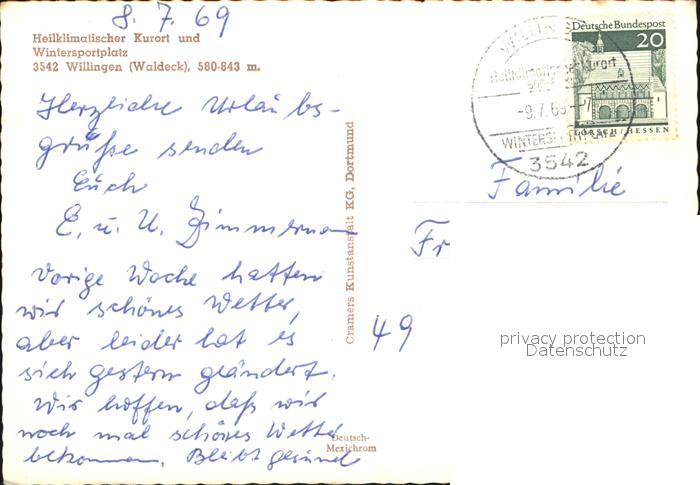 8. 7. 69
Heilklimatischer Kurort und
Wintersportplatz
3542 Willingen (Waldeck), 580-843 m.
Herzliche Urlaubs-
grüße senden
Euch
E. u. U. Zimmermann
Vorige Woche hatten
wir schönes Wetter,
aber leider hat es
sich gestern geändert.
Wir hoffen, daß wir
noch mal schönes Wetter
bekommen. Bleibt gesund
Cramers Kunstanstalt KG, Dortmund
Deutsch-
Mexichrom
Deutsche Bundespost
20
LORSCH / HESSEN
Heilklimatischer Kurort
-9.7.69
3542
Familie
Fr
49
privacy protection
Datenschutz